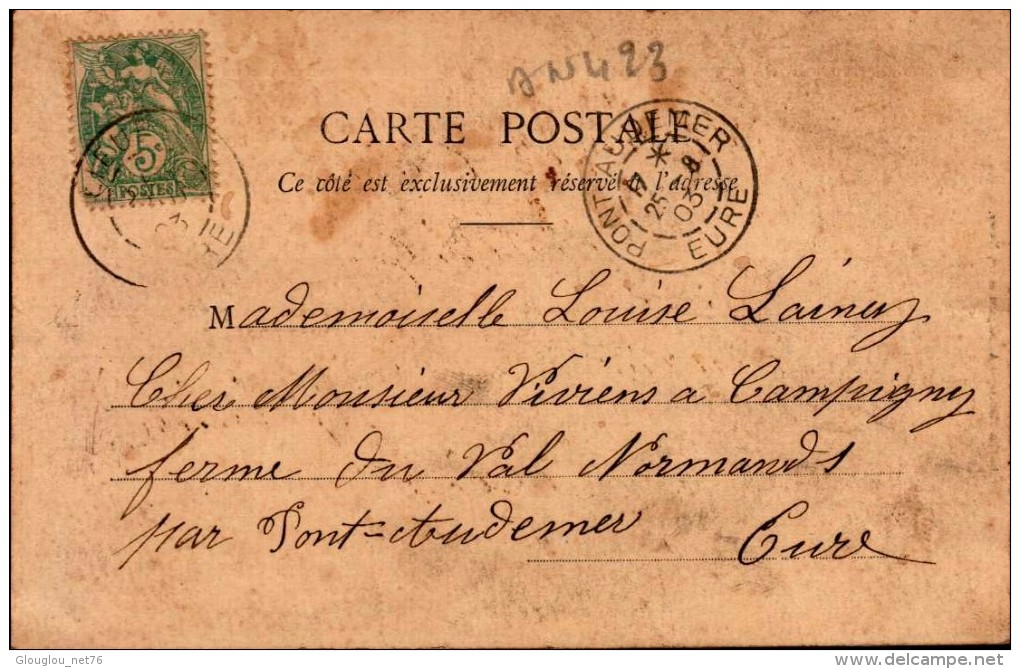 AN423
CARTE POSTALE
Ce côté est exclusivement réservé à l'adresse
5
POSTES
PONT-AUDEMER
25 -8
03
EURE
Mademoiselle Louise Lainey
Chez Monsieur Viviens a Campigny
ferme du Val Normands
par Pont-Audemer Eure
Glouglou_net76
delcampe.net